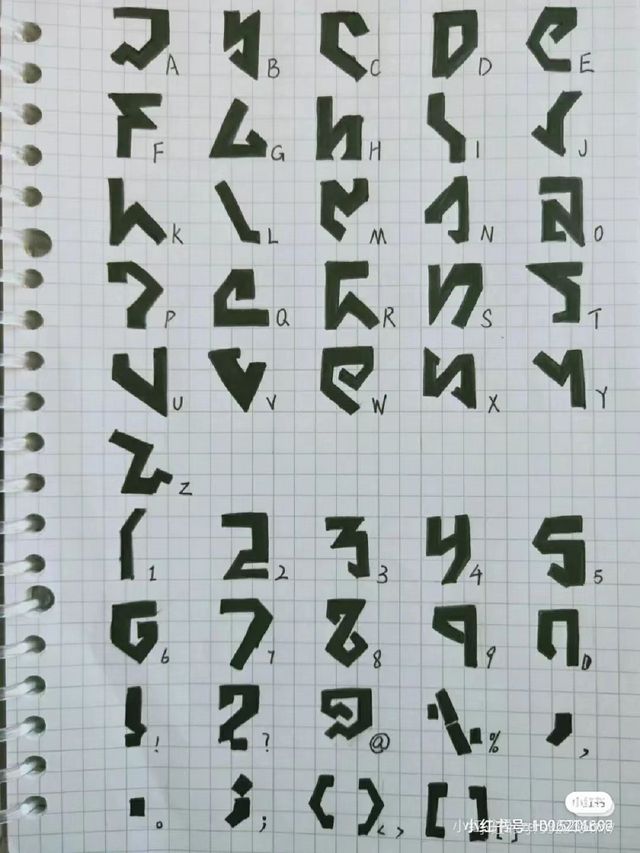 A B C D E
F G H I J
K L M N O
P Q R S T
U V W X Y
Z
1 2 3 4 5
6 7 8 9 0
! ? @ % ,
。 ; < > [ ]
小红书
小红书号